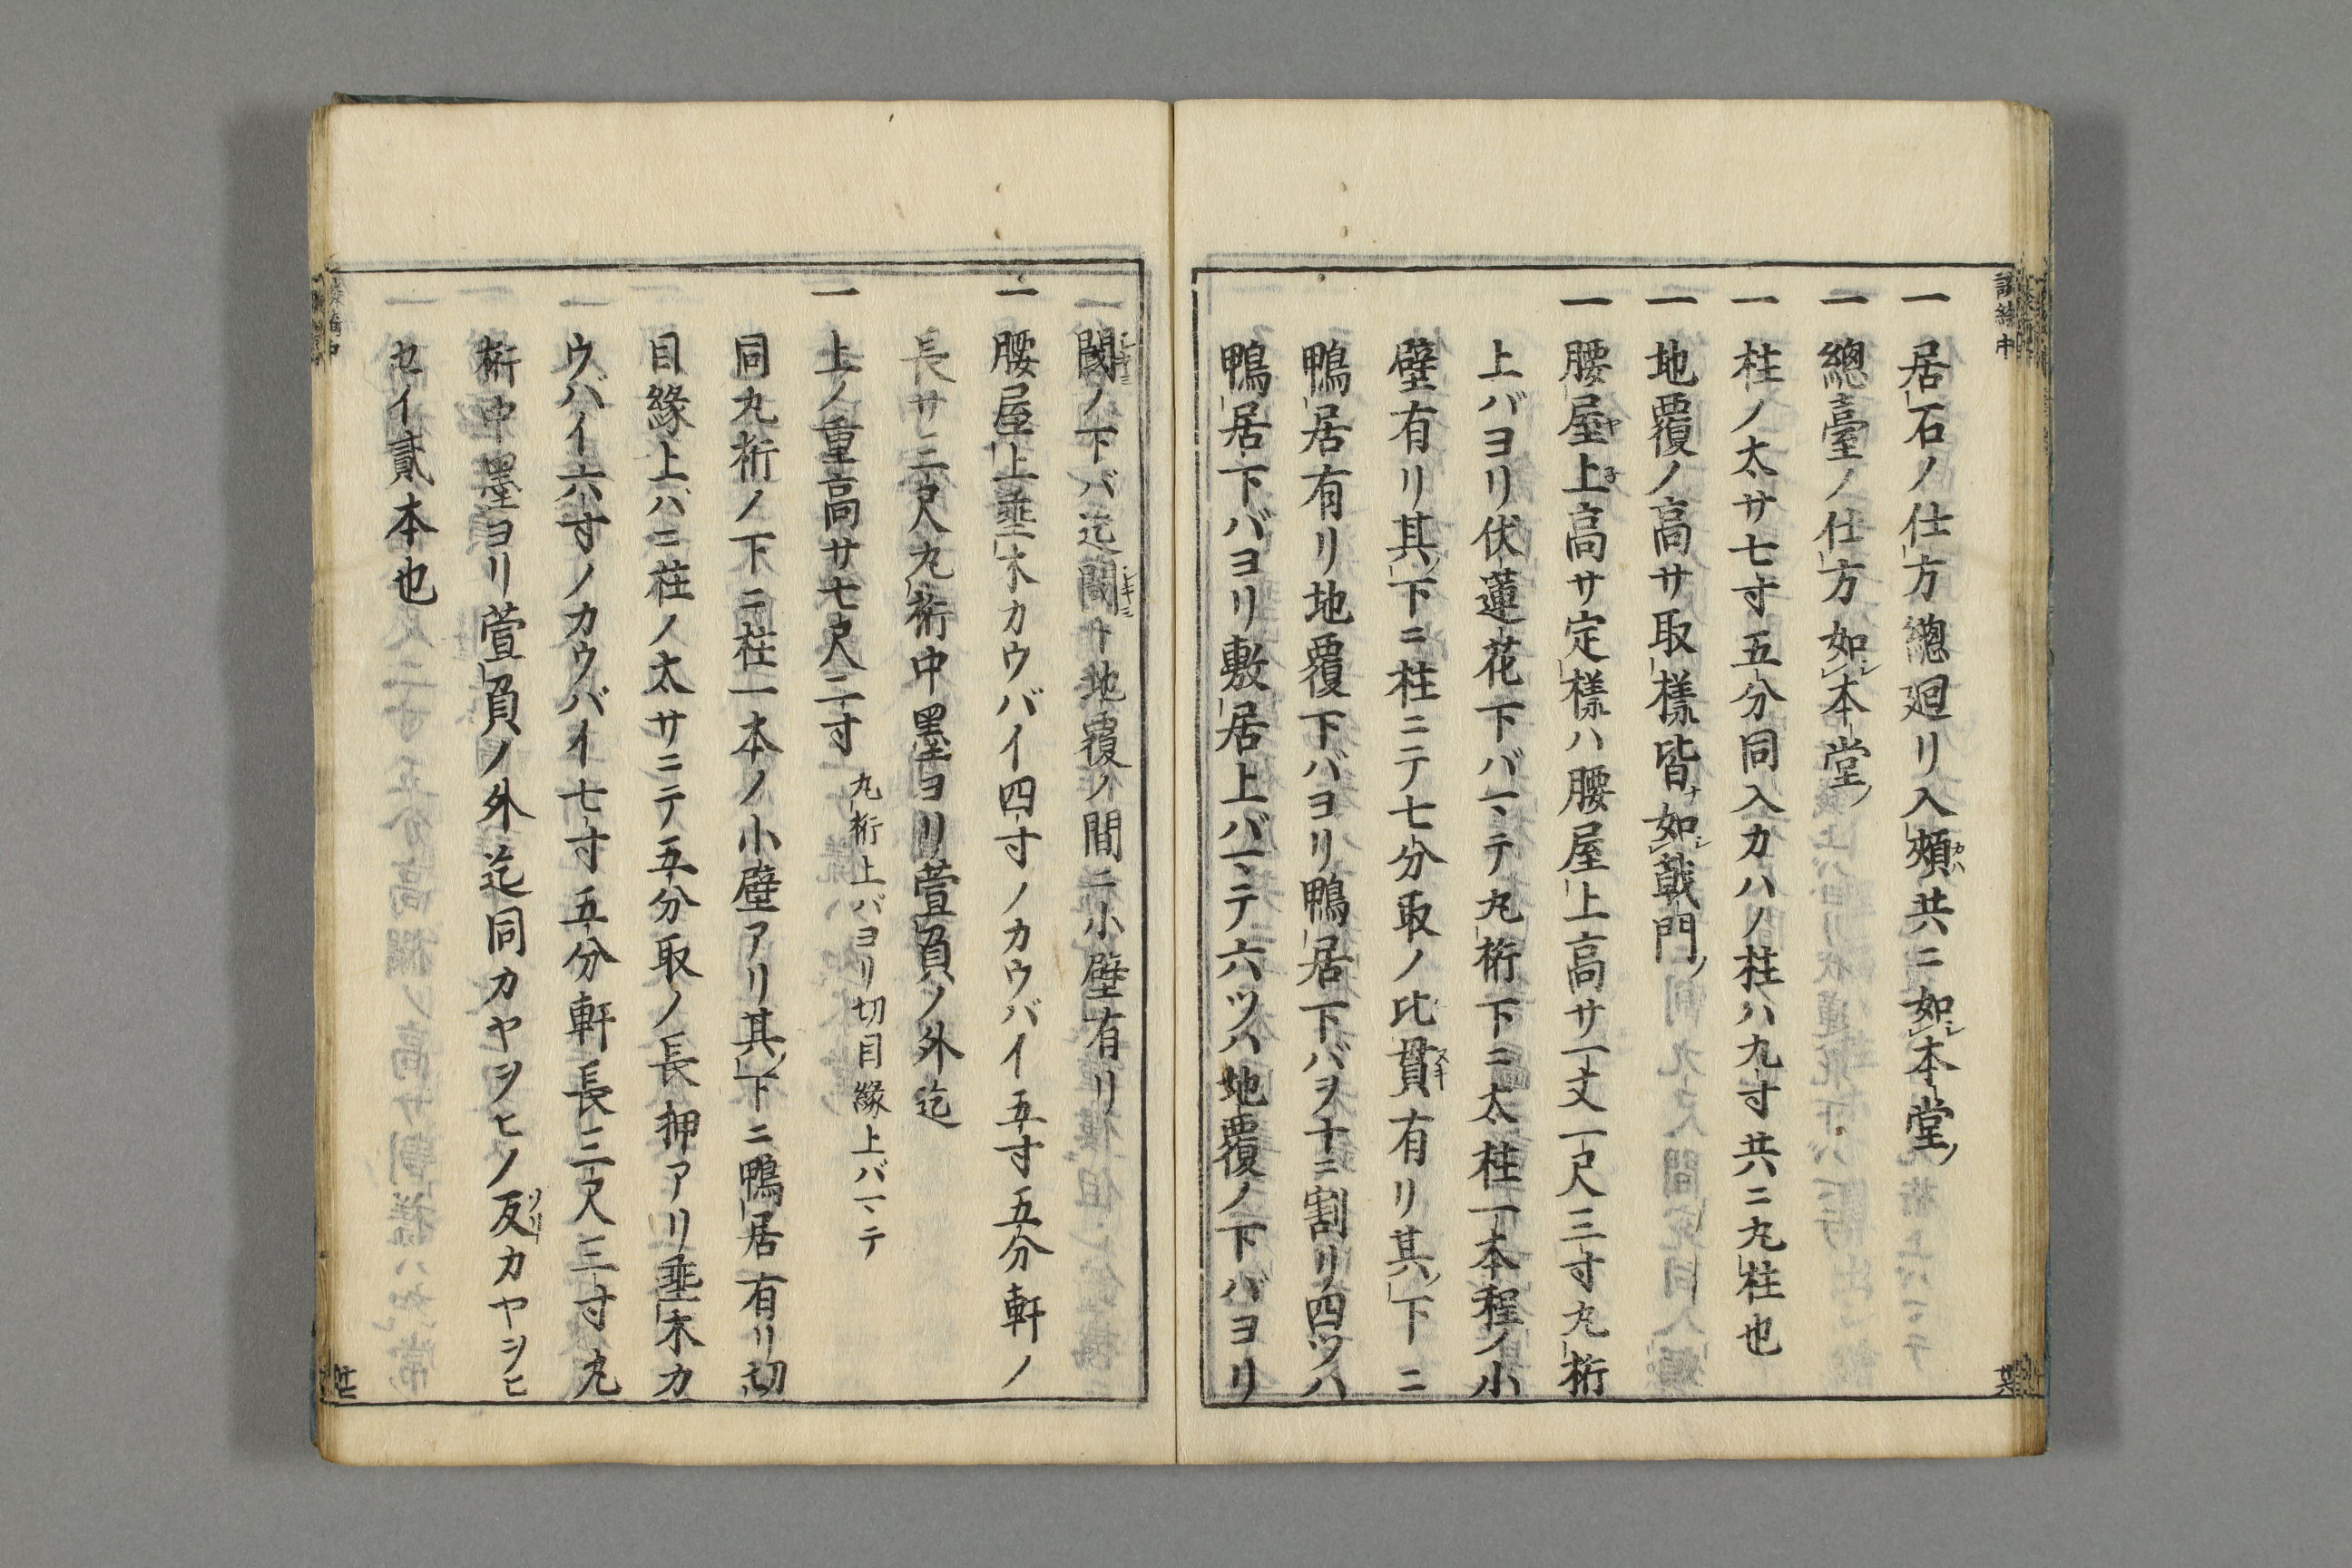 一居石ノ仕方總廻リ入頰共ニ如本堂ノ
一總臺ノ仕方如本堂ノ
一柱ノ太サ七寸五分同入カハノ柱ハ九寸共ニ丸柱也
一地覆ノ高サ取樣皆如戟門ノ
一腰屋上高サ定樣ハ腰屋上高サ一丈一尺三寸丸桁
上バヨリ伏蓮花下バ一丶テ丸桁下ニ太柱一本程ノ小
壁有リ其ノ下ニ柱ニテ七分取ノ比貫有リ其ノ下ニ
鴨居有リ地覆下バヨリ鴨居下バヲ十ニ割リ四ツハ
鴨居下バヨリ敷居上バ一丶テ六ツハ地覆ノ下バヨリ
閾ノ下バ迄閾ト地覆ノ間ニ小壁有リ
一腰屋上垂木カウバイ四寸ノカウバイ五寸五分軒ノ
長サ二尺丸桁中墨ヨリ萱負ノ外迄
一上ノ重高サ七尺二寸 丸桁上バヨリ切目緣上バ一丶テ
同丸桁ノ下ニ柱一本ノ小壁アリ其ノ下ニ鴨居有リ切
目緣上バニ柱ノ太サニテ五分取ノ長押アリ垂木カ
ウバイ六寸ノカウバイ七寸五分軒長三尺三寸丸
桁中墨ヨリ萱負ノ外迄同カヤヲヒノ反カヤヲヒ
セイ貳本也